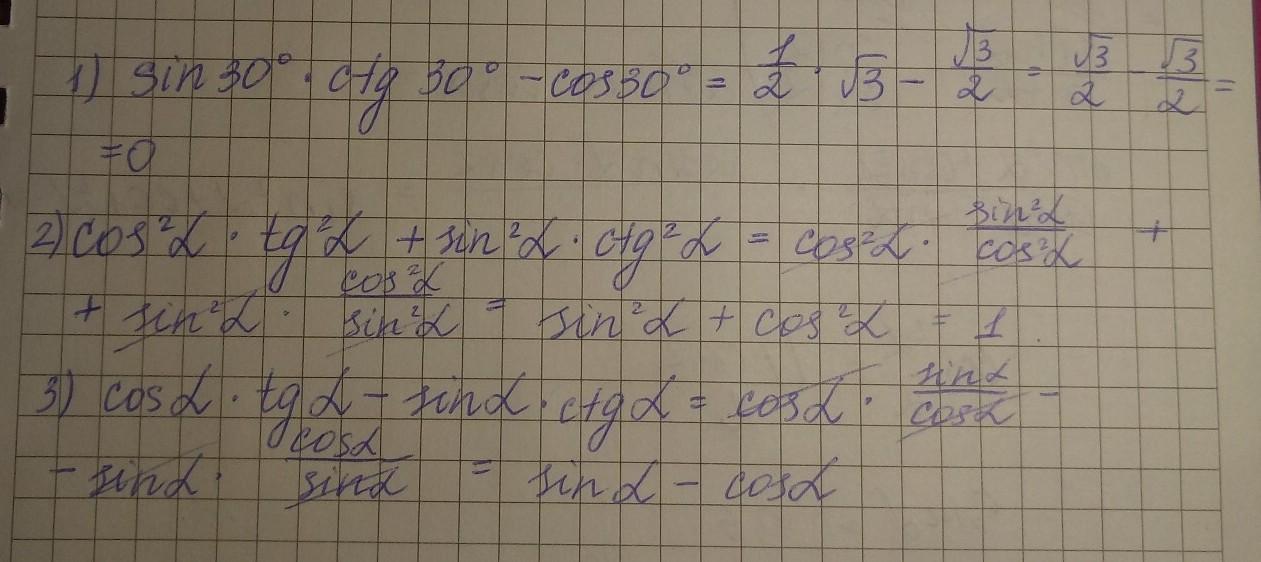 1) sin 30° · ctg 30° - cos 30° = 1/2 · √3 - √3/2 = √3/2 - √3/2 =
= 0
2) cos²α · tg²α + sin²α · ctg²α = cos²α · sin²α/cos²α +
+ sin²α · cos²α/sin²α = sin²α + cos²α = 1
3) cosα · tgα - sinα · ctgα = cosα · sinα/cosα -
- sinα · cosα/sinα = sinα - cosα